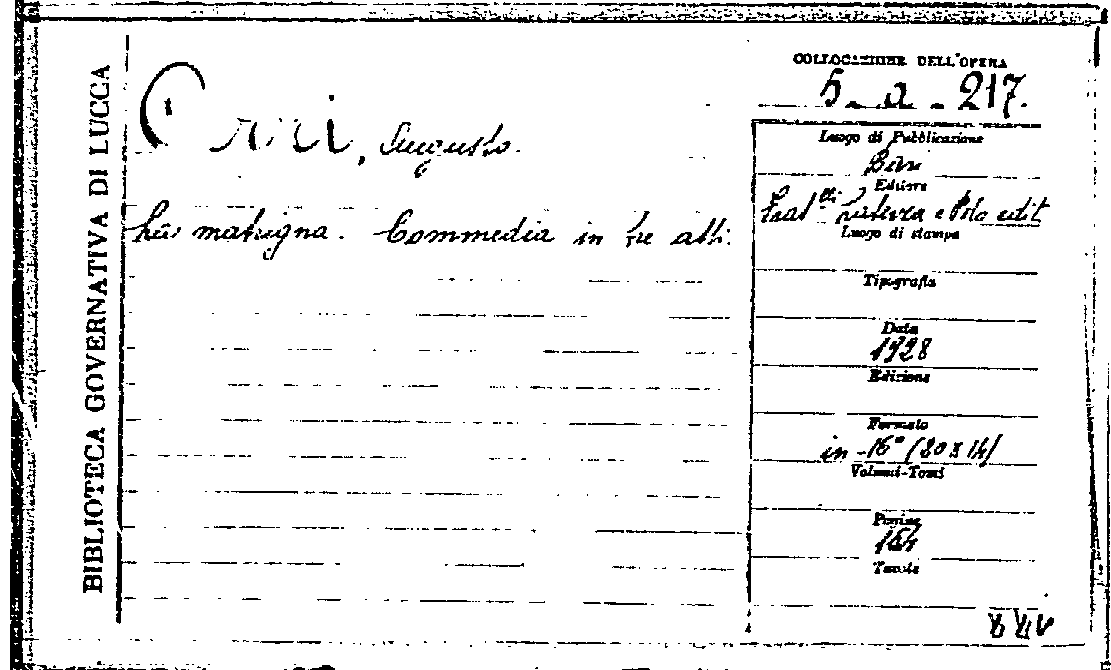 BIBLIOTECA GOVERNATIVA DI LUCCA
COLLOCAZIONE DELL'OPERA
5 - a - 217.
, Augusto.
matrigna. Commedia in tre atti.
Luogo di Pubblicazione
Bari
Editore
Frat.lli Laterza e Polo edit
Luogo di stampa
Tipografia
Data
1928
Edizione
Formato
in - 16° (20 x 14)
Volumi-Tomi
Pagine
164
Tavole